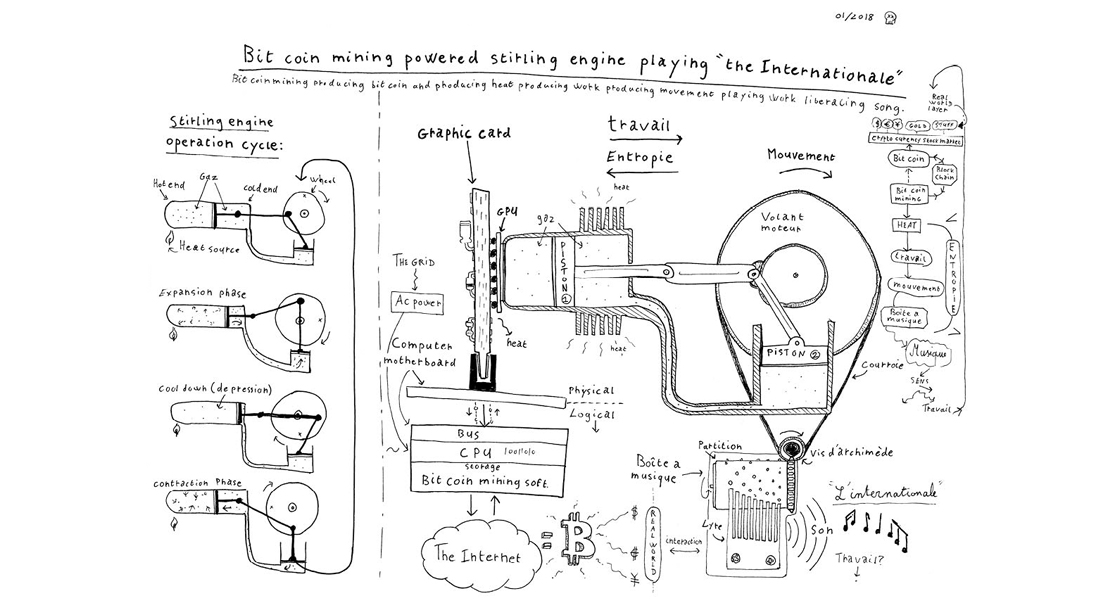 01/2018
Bit coin mining powered stirling engine playing "the Internationale"
Bit coin mining producing bit coin and producing heat producing work producing movement playing work liberating song.
Stirling engine
operation cycle:
Hot end
Gaz
cold end
wheel
Heat source
Expansion phase
Cool down (depression)
contraction phase
Graphic card
travail
Entropie
Mouvement
GPU
gaz
heat
PISTON
②
Volant
moteur
THE GRID
Ac power
heat
heat
Computer
motherboard
PISTON ②
Courroie
Physical
Logical
BUS
CPU 1001010
storage
Bit coin mining soft.
The Internet
B
$
€
¥
REAL WORLD
interaction
Partition
Boîte a
musique
Lyre
Vis d'archimède
Son
"L'internationale"
Travail?
Real
world
layer
$ € ¥ GOLD STUFF
Crypto curency stock market
Bit coin
Block
chain
Bit coin
mining
HEAT
travail
mouvement
Boîte a
musique
Musique
SENS
Travail
ENTROPIE